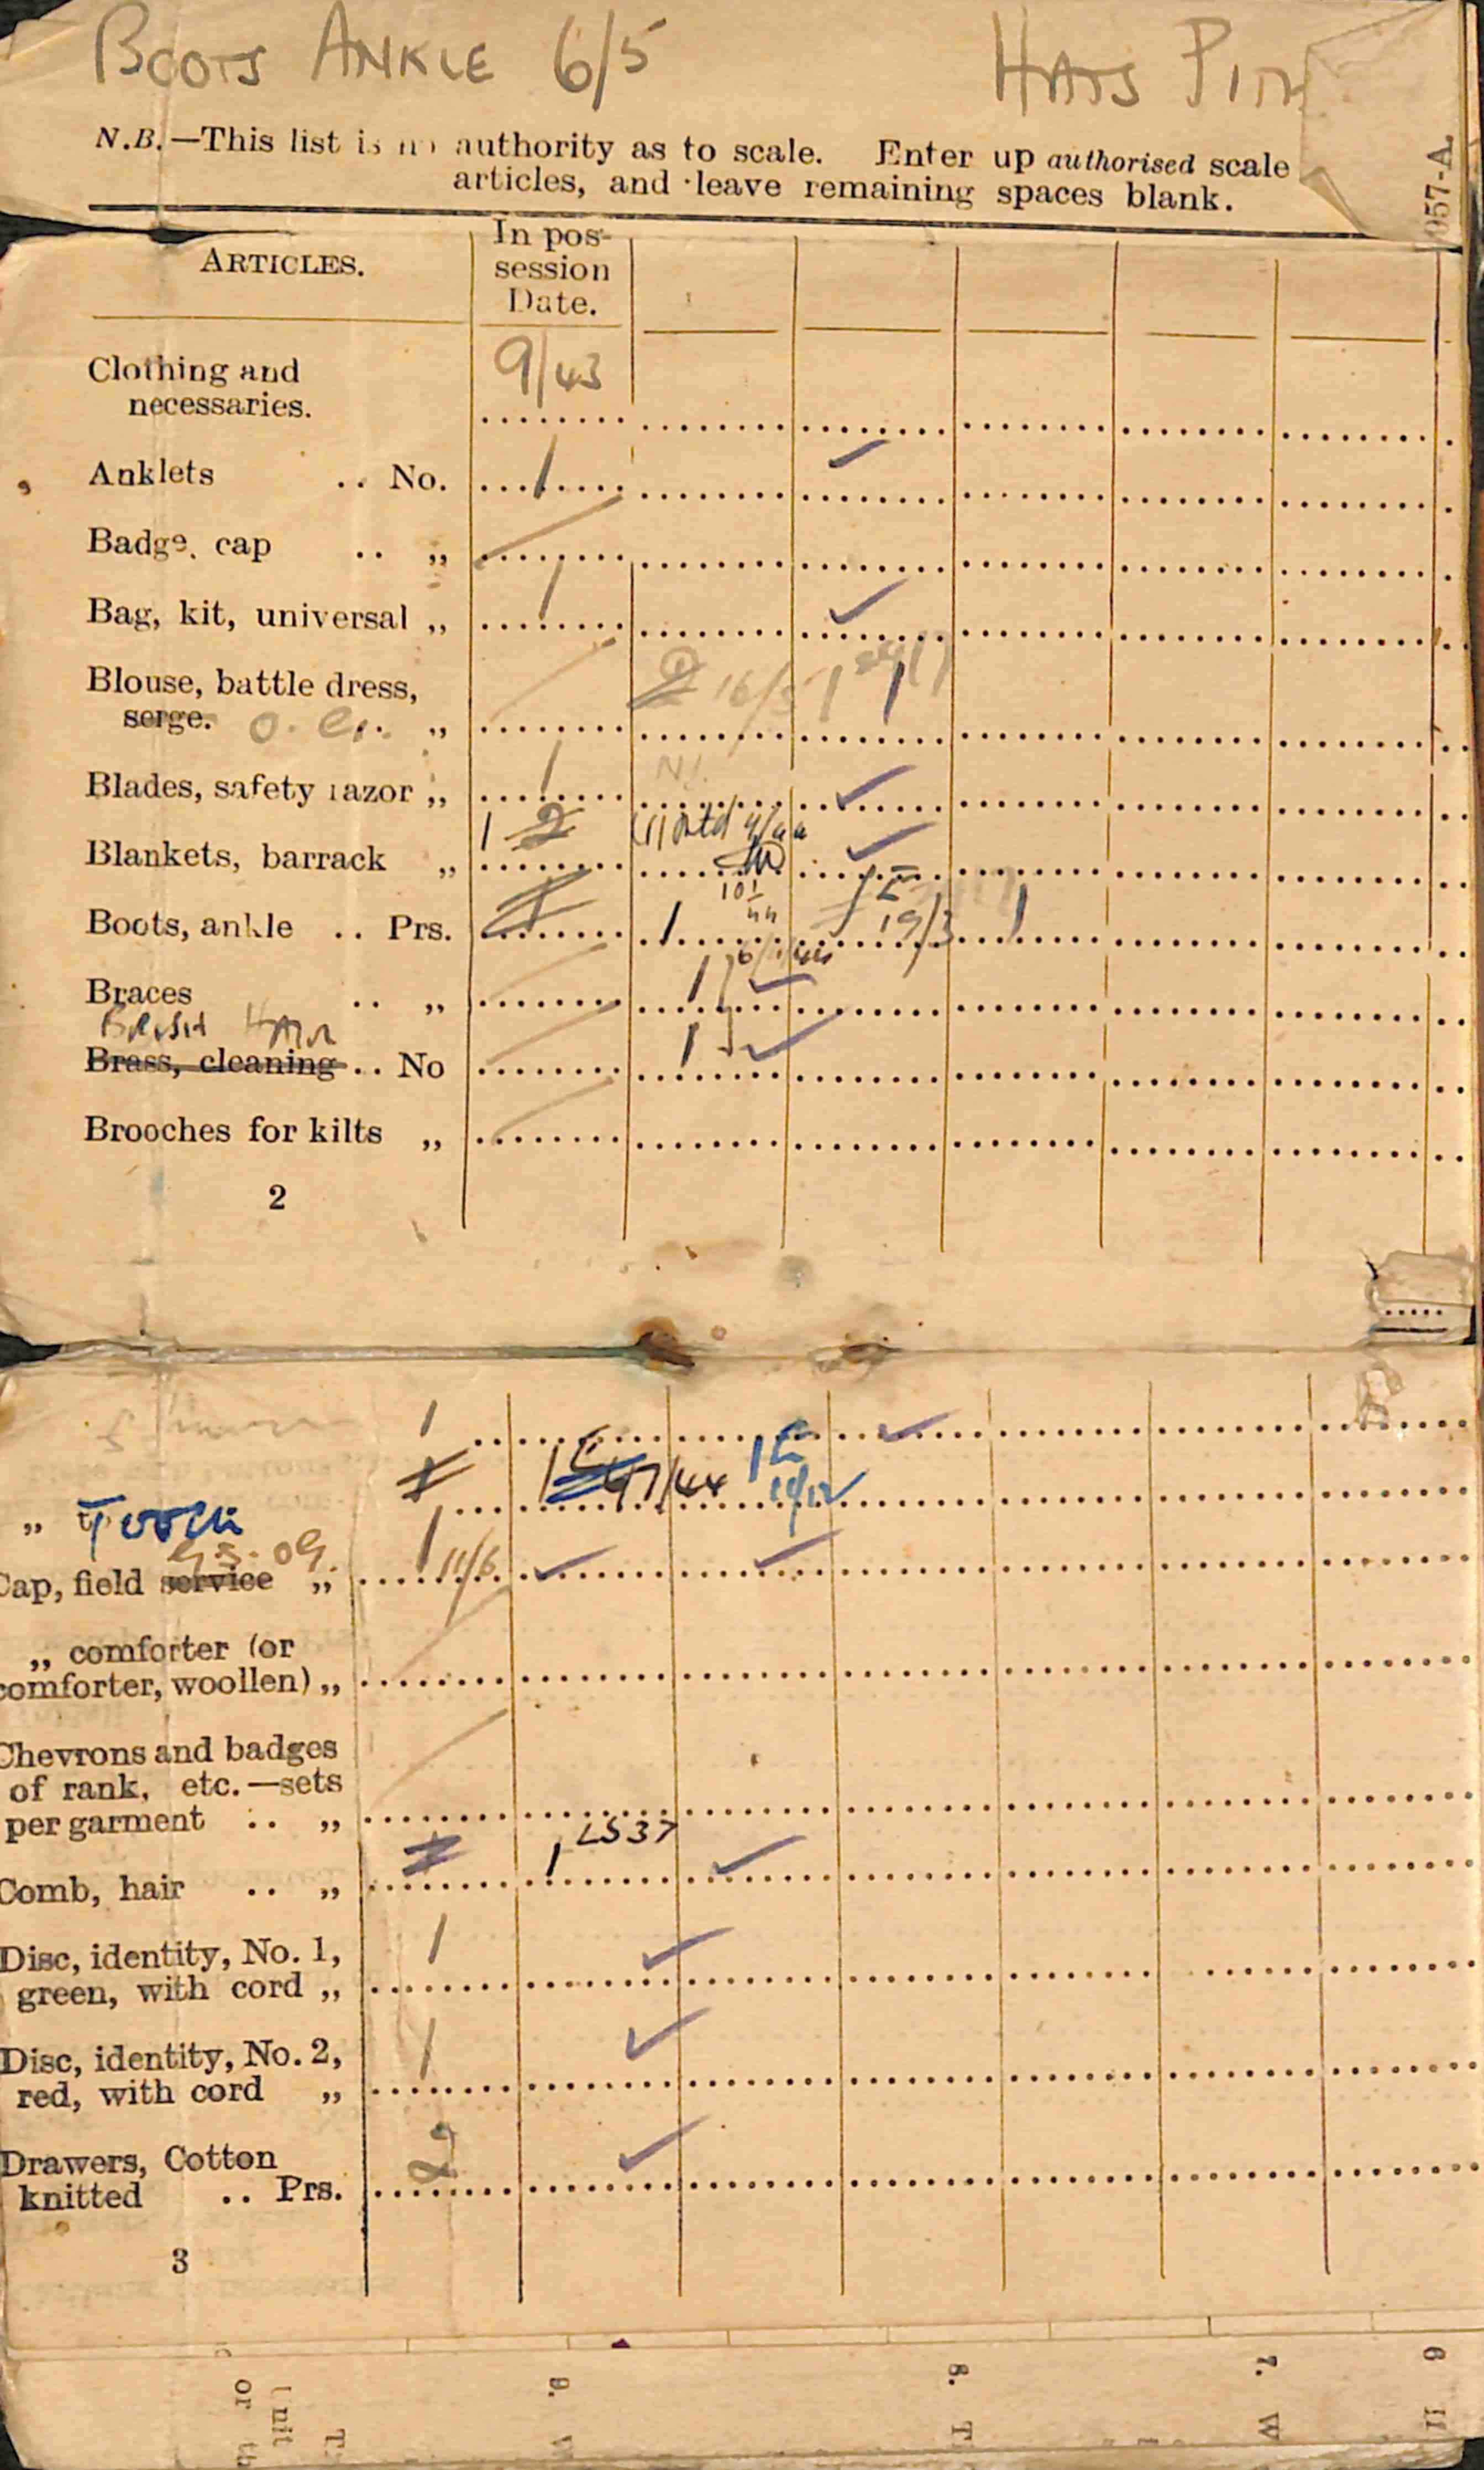 BOOTS ANKLE 6/5 HATS
N.B.—This list is no authority as to scale. Enter up authorised scale
articles, and leave remaining spaces blank.
957-A
ARTICLES. In pos-
session
Date.
Clothing and
necessaries. 9/43
Anklets .. No. 1 ✓
Badge, cap .. „ /
Bag, kit, universal „ 1 ✓
Blouse, battle dress,
serge. „ / 16/5 1
Blades, safety razor „ 1 ✓
Blankets, barrack „ 1 2 (1) Rtd ✓
Boots, ankle .. Prs. 1 1 10/1 44 19/3 1
Braces .. „ / 1 ✓
BRUSH HAIR
Brass, cleaning .. No / 1 ✓
Brooches for kilts „ /
2
1 ✓
„ Tooth 1 1 7/44 1 ✓
Cap, field service „ 1 11/6 ✓ ✓
„ comforter (or
comforter, woollen) „ /
Chevrons and badges
of rank, etc.—sets
per garment .. „ /
Comb, hair .. „ 1 1 LS37 ✓
Disc, identity, No. 1,
green, with cord „ 1 ✓
Disc, identity, No. 2,
red, with cord „ 1 ✓
Drawers, Cotton
knitted .. Prs. 2 ✓
3
6
7. W
8. T
9.
Unit
or